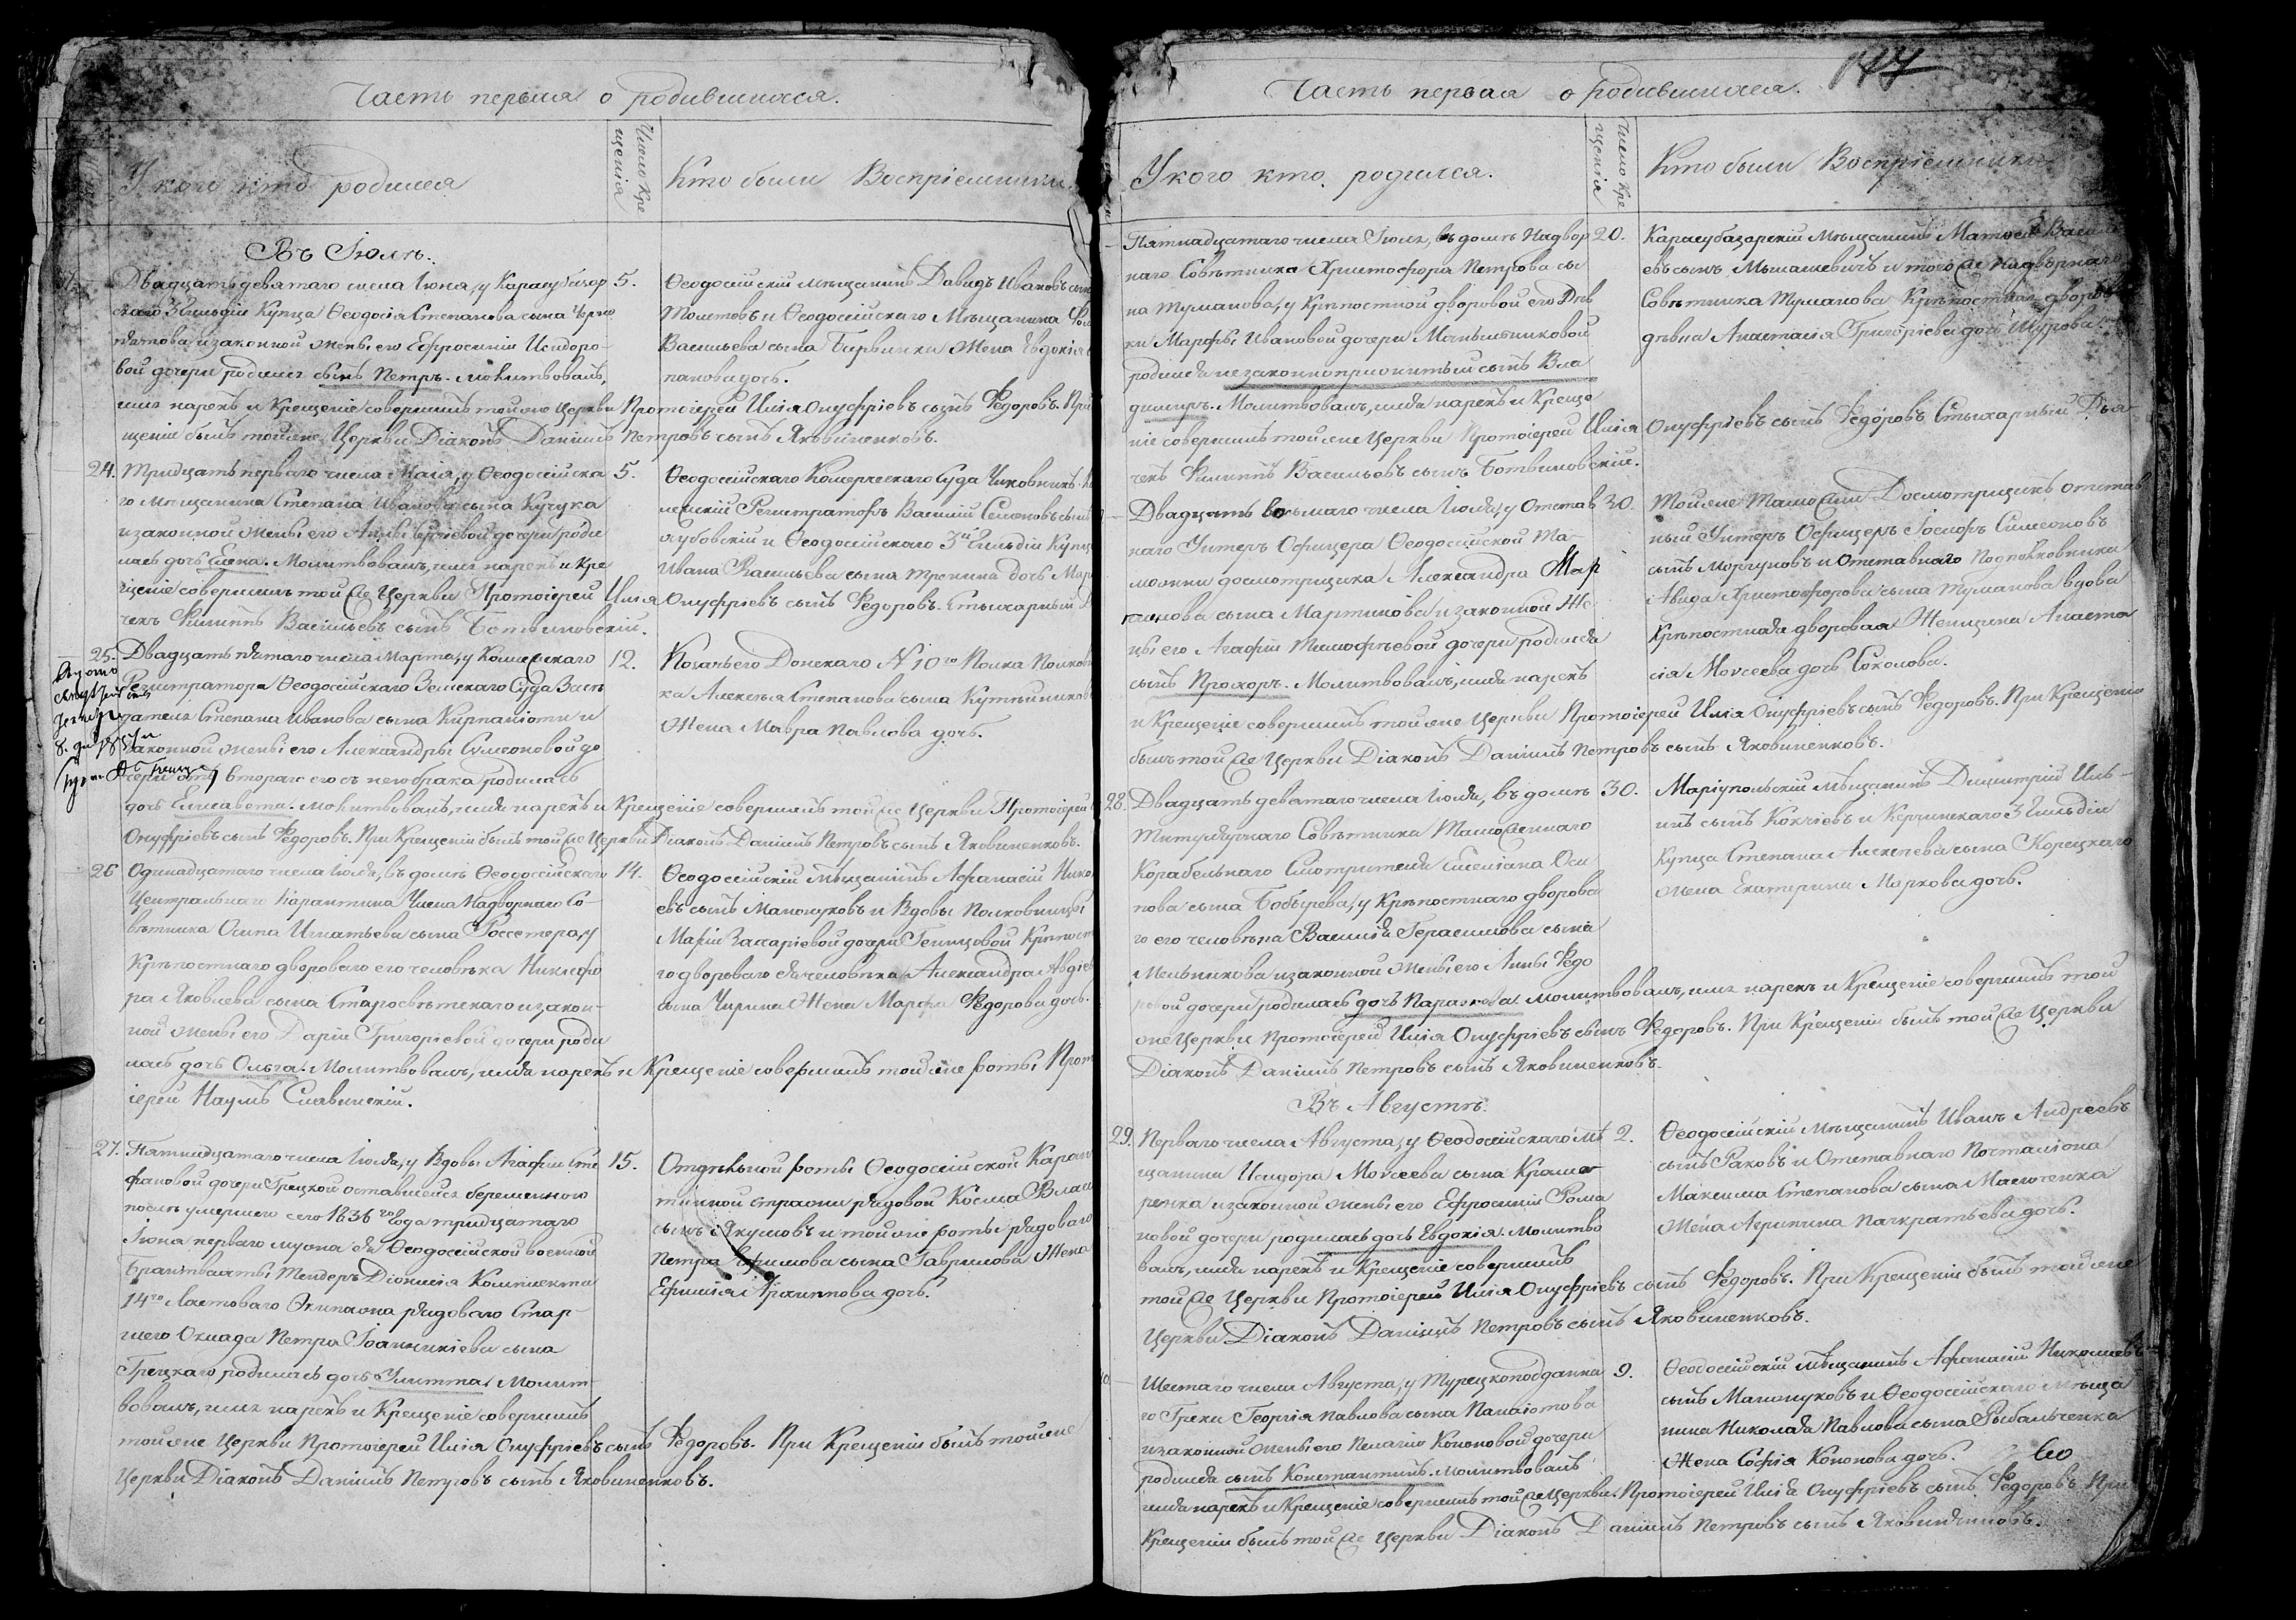 Часть первая о родившихся.
У кого кто родился
Число Кре
щенія
Кто были Воспріемники.
Въ Іюлѣ.
Двадцать девятаго числа Іюня, у Карасубазар
скаго 3 Гильдіи Купца Ѳеодосія Степанова сына
изаконной жены его Ефросиніи Исидоро-
вой дочери родился сынъ Петръ. Молитвовалъ,
имя нарекъ и Крещеніе совершилъ той же Церкви Протоіерей Илія Онуфріевъ сынъ Ѳедоровъ. При
щеніи былъ той же Церкви Діаконъ Даніилъ Петровъ сынъ Яковиненковъ.
5.
Ѳеодосійскій мѣщанинъ Давидъ Ивановъ сынъ
и Ѳеодосійскаго Мѣщанина
Васильева сына Жена Евдокія
панова дочь.
24. Тридцать перваго числа Маія, у Ѳеодосійска
го мѣщанина Степана Иванова сына Кучука
изаконной жены его Анны дочери роди
лась дочь Елена. Молитвовалъ, имя нарекъ и Кре
щеніе совершилъ той же Церкви Протоіерей Илія Онуфріевъ сынъ Ѳедоровъ. Стихарный
чекъ Филиппъ Васильевъ сынъ Ботвиновскій.
5.
Ѳеодосійскаго Комерческаго Суда Чиновникъ
Регистраторъ Василій Семеновъ сынъ
и Ѳеодосійскаго 3й Гильдіи Купц
Ивана Васильева сына Тренина дочь
25. Двадцать пятаго числа Марта, у Колежскаго
Регистратора Ѳеодосійскаго Земскаго Суда Засѣ
дателя Степана Иванова сына и
законной жены его Александры Симеоновой до
чери отъ втораго его съ нею брака родилась
дочь Елисавета. Молитвовалъ, имя нарекъ и Крещеніе совершилъ той же Церкви Протоіерей
Онуфріевъ сынъ Ѳедоровъ. При Крещеніи былъ той же Церкви Діаконъ Даніилъ Петровъ сынъ Яковиненковъ.
12.
Козачьего Донскаго N 10го Полка Полковн
ка Алексея Степанова сына
Жена Мавра Павлова дочь.
26 Одинадцатаго числа Іюля, въ домѣ Ѳеодосійскаго
Центральнаго Карантина Члена Надворнаго Со-
вѣтника Осипа Игнатьева сына Россетера, у
Крѣпостнаго двороваго его человѣка Никифо
ра Яковлева сына Старосвѣтскаго изакон-
ной жены его Даріи Григоріевой дочери роди
лась дочь Ольга. Молитвовалъ, имя нарекъ и Крещеніе совершилъ той же роты Прот
іерей Наумъ Славинскій.
14.
Ѳеодосійскій Мѣщанинъ Афанасій Нико
евъ сынъ Маножуковъ и Вдовы Полковницы
Маріи Захаріевой дочери Крѣпост
го двороваго человѣка Александра Авдіев
сына Чирина Жена Марфа Ѳедорова дочь.
27. Пятнадцатаго числа Іюля, у Вдовы Агафіи Сте
фановой дочери Грецкой оставшейся беременною
послѣ умершего сего 1836го Года тридцатаго
Іюня перваго мужа ея Ѳеодосійской военной
Брантвахты Тендеръ Діонисія Комплекта
14го Ластоваго Экипажа рядоваго Стар-
шего Оклада Петра Іоанникіева сына
Грецкаго родилась дочь Улитта. Молит-
вовалъ, имя нарекъ и Крещеніе совершилъ
той же Церкви Протоіерей Илія Онуфріевъ сынъ Ѳедоровъ. При Крещеніи былъ той же
Церкви Діаконъ Даніилъ Петровъ сынъ Яковиненковъ.
15.
Отдѣльной роты Ѳеодосійской Каран
тинной стражи рядовой Косма Влас
сынъ Якумовъ и той же роты рядоваго
Петра Ефимова сына Гаврилова Жена
Ефимія Архиппова дочь.
Часть первая о родившихся.
У кого кто родился.
Число Кре
щенія
Кто были Воспріемники
Пятнадцатаго числа Іюля, въ домѣ Надвор
наго Совѣтника Христофора Петрова сы
на Туманова, у Крѣпостной дворовой его Дѣв
ки Марфы Ивановой дочери Маньшиковой
родился незаконноприжитый сынъ Вла
димиръ. Молитвовалъ, имя нарекъ и Креще
ніе совершилъ той же Церкви Протоіерей Илія Онуфріевъ сынъ Ѳедоровъ Стихарный Дья
чекъ Филиппъ Васильевъ сынъ Ботвиновскій.
20.
Карасубазарскій Мѣщанинъ
евъ сынъ Мышакевичъ и того же Надворнаго
Совѣтника Туманова Крѣпостная дворов
дѣвка Анастасія Григоріева дочь Шурова.
Двадцать восьмаго числа Іюля, у Отстав
наго Унтеръ Офицера Ѳеодосійской Та-
можни досмотрщика Александра Мар
тинова сына Мартинова изаконной Же
ны его Агафіи Тимофѣевой дочери родился
сынъ Прохоръ. Молитвовалъ, имя нарекъ
и Крещеніе совершилъ той же Церкви Протоіерей Илія Онуфріевъ сынъ Ѳедоровъ. При Крещеніи
былъ той же Церкви Діаконъ Даніилъ Петровъ сынъ Яковиненковъ.
30.
Той же Таможни Досмотрщикъ отстав
ный Унтеръ Офицеръ Іосифъ Симеоновъ
сынъ Моргуновъ и Отставнаго Подполковника
Авида Христофорова сына Туманова вдова
Крѣпостная дворовая Женщина Анаста
сія Моѵсеева дочь Соколова.
28. Двадцать девятаго числа Іюля, въ домѣ
Титулярнаго Совѣтника Таможеннаго
Корабельнаго Смотрителя Емеліана Оси
пова сына Бобырева, у Крѣпостнаго дворова
го его человѣка Василія Герасимова сына
Мельникова изаконной жены его Анны Ѳедо
ровой дочери родилась дочь Параскева. Молитвовалъ, имя нарекъ и Крещеніе совершилъ той
же Церкви Протоіерей Илія Онуфріевъ сынъ Ѳедоровъ. При Крещеніи былъ той же Церкви
Діаконъ Даніилъ Петровъ сынъ Яковиненковъ.
30.
Маріупольскій мѣщанинъ Димитрій Иль-
инъ сынъ Кокчіевъ и Керчинскаго 3 Гильдіи
Купца Степана Алексѣева сына Корецкаго
жена Екатерина Маркова дочь.
Въ Августѣ.
29. Перваго числа Августа, у Ѳеодосійскаго Мѣ
щанина Исидора Моѵсеева сына Крама
ренка изаконной жены его Ефросиніи Рома
новой дочери родилась дочь Евдокія. Молитво
валъ, имя нарекъ и Крещеніе совершилъ
той же Церкви Протоіерей Илія Онуфріевъ сынъ Ѳедоровъ. При Крещеніи былъ той же
Церкви Діаконъ Даніилъ Петровъ сынъ Яковиненковъ.
2.
Ѳеодосійскій Мѣщанинъ Иванъ Андреевъ
сынъ Раковъ и Отставнаго Почталіона
Максима Степанова сына
Жена Агрипина Панкратьева дочь.
Шестаго числа Августа, у Турецкоподданна
го Грека Георгія Павлова сына Панаіотова
изаконной жены его Пелагіи Кононовой дочери
родился сынъ Константинъ. Молитвовалъ
имя нарекъ и Крещеніе совершилъ той же Церкви Протоіерей Илія Онуфріевъ сынъ Ѳедоровъ При
Крещеніи былъ той же Церкви Діаконъ Даніилъ Петровъ сынъ Яковиненковъ.
9.
Ѳеодосійскій мѣщанинъ Афанасій Николаевъ
сынъ Маножуковъ и Ѳеодосійскаго мѣща
нина Николая Павлова сына Рыбальченка
Жена Софія Кононова дочь.